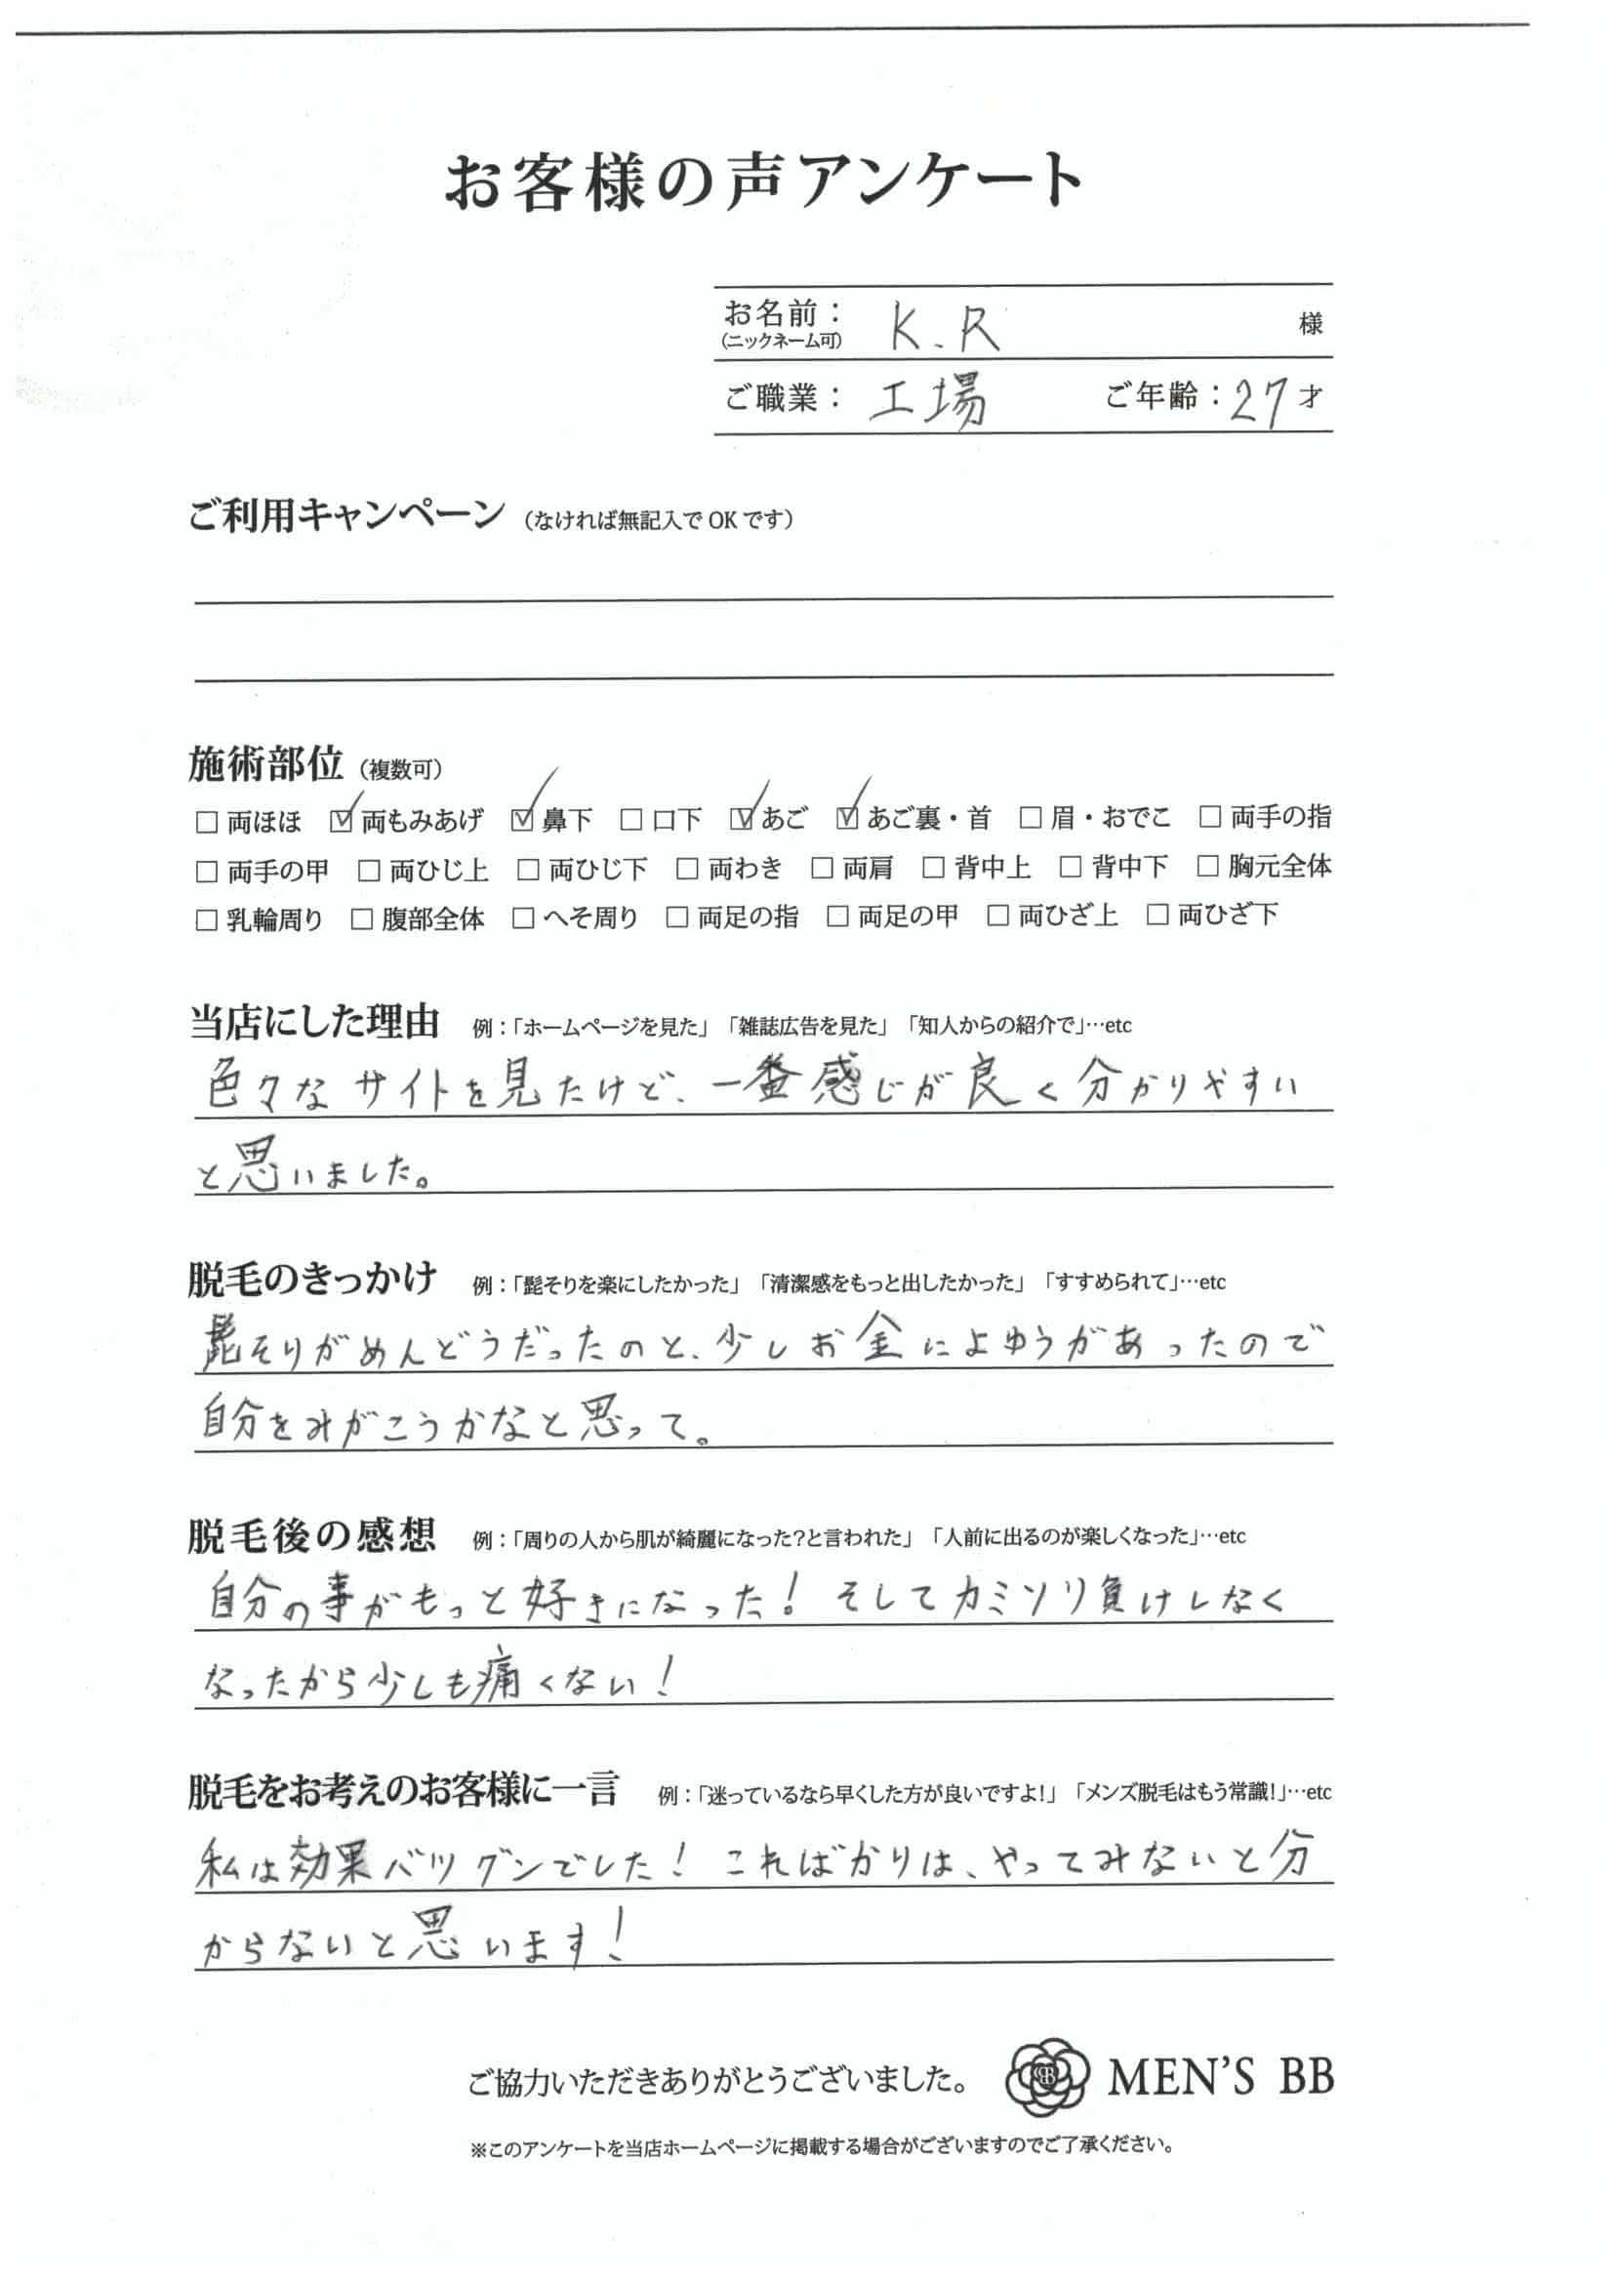 お客様の声アンケート
お名前： K.R 様
(ニックネーム可)
ご職業： 工場 ご年齢：27才
ご利用キャンペーン （なければ無記入でOKです）
施術部位 （複数可）
□ 両ほほ ☑ 両もみあげ ☑ 鼻下 □ 口下 ☑ あご ☑ あご裏・首 □ 眉・おでこ □ 両手の指
□ 両手の甲 □ 両ひじ上 □ 両ひじ下 □ 両わき □ 両肩 □ 背中上 □ 背中下 □ 胸元全体
□ 乳輪周り □ 腹部全体 □ へそ周り □ 両足の指 □ 両足の甲 □ 両ひざ上 □ 両ひざ下
当店にした理由 例：「ホームページを見た」「雑誌広告を見た」「知人からの紹介で」…etc
色々なサイトを見たけど、一番感じが良く分かりやすい
と思いました。
脱毛のきっかけ 例：「髭そりを楽にしたかった」「清潔感をもっと出したかった」「すすめられて」…etc
髭そりがめんどうだったのと、少しお金によゆうがあったので
自分をみがこうかなと思って。
脱毛後の感想 例：「周りの人から肌が綺麗になった？と言われた」「人前に出るのが楽しくなった」…etc
自分の事がもっと好きになった！そしてカミソリ負けしなく
なったから少しも痛くない！
脱毛をお考えのお客様に一言 例：「迷っているなら早くした方が良いですよ！」「メンズ脱毛はもう常識！」…etc
私は効果バツグンでした！こればかりは、やってみないと分
からないと思います！
ご協力いただきありがとうございました。 MEN'S BB
※このアンケートを当店ホームページに掲載する場合がございますのでご了承ください。